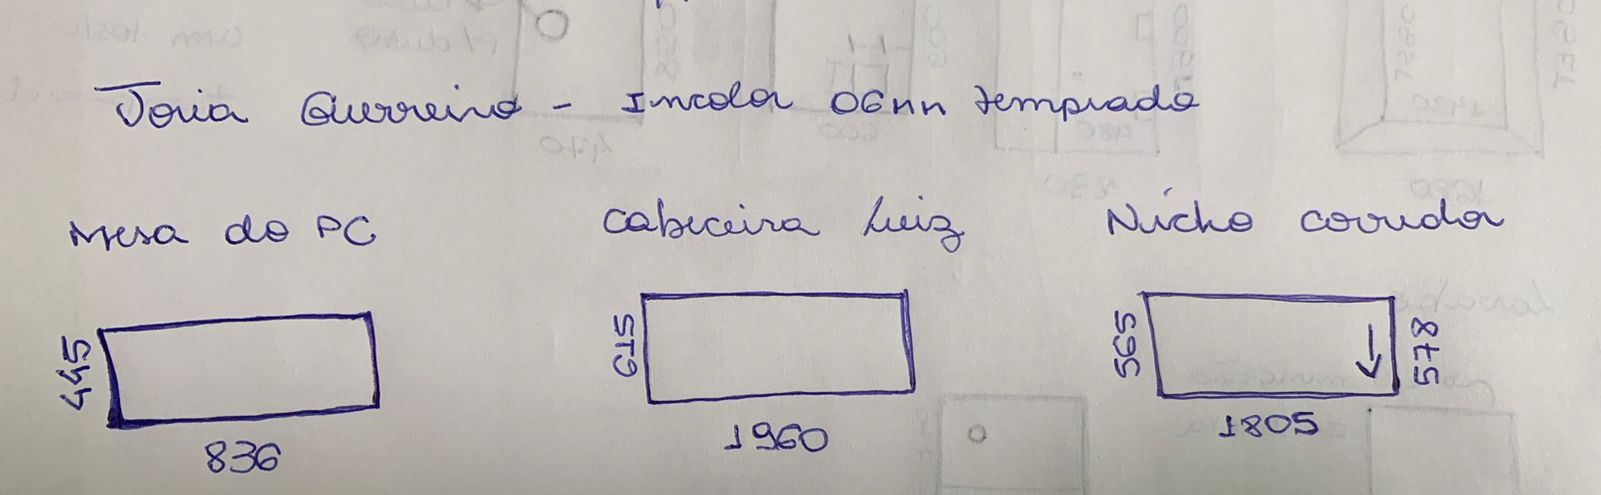 Joria Guerreiro - Incolor 06mm temprado
Mesa do PC
445
836
Cabeceira Luiz
615
1960
Nicho corredor
565
578
1805